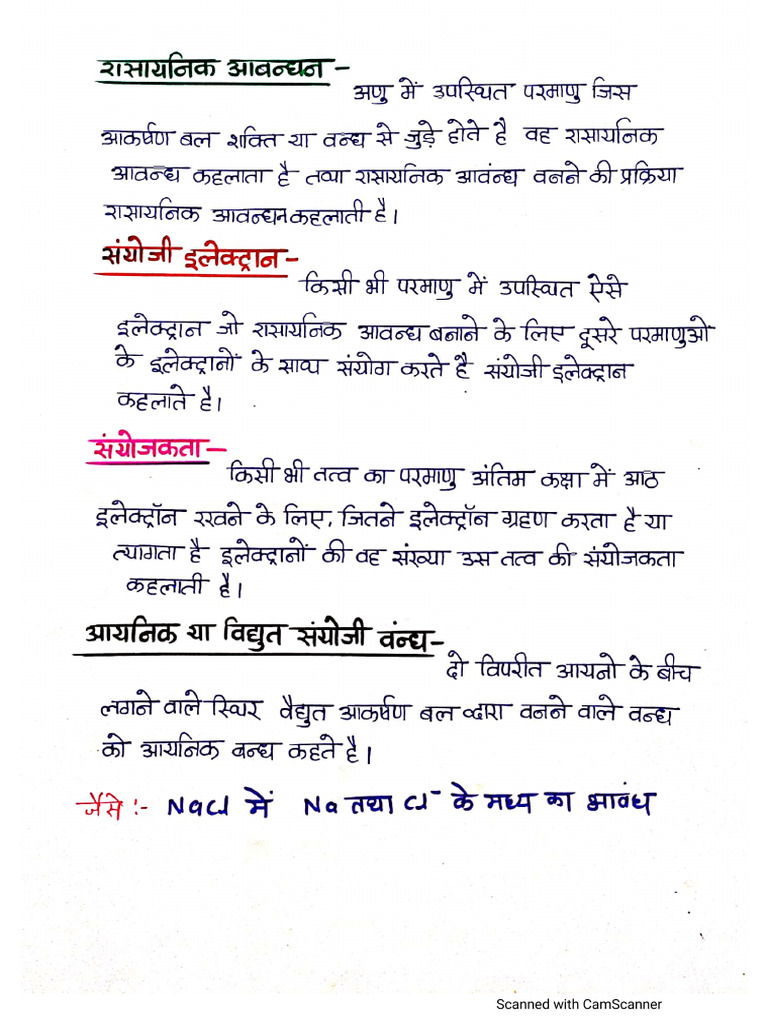 रासायनिक आबन्धन -
अणु में उपस्थित परमाणु जिस
आकर्षण बल शक्ति या वन्ध से जुड़े होते है वह रासायनिक
आवन्ध कहलाता है तथा रासायनिक आवंन्ध वनने की प्रक्रिया
रासायनिक आवन्धन कहलाती है।
संयोजी इलेक्ट्रान -
किसी भी परमाणु में उपस्थित ऐसे
इलेक्ट्रान जो रासायनिक आवन्ध बनाने के लिए दूसरे परमाणुओ
के इलेक्ट्रानों के साथ संयोग करते है संयोजी इलेक्ट्रान
कहलाते है।
संयोजकता -
किसी भी तत्व का परमाणु अंतिम कक्षा में आठ
इलेक्ट्रॉन रखने के लिए, जितने इलेक्ट्रॉन ग्रहण करता है या
त्यागता है इलेक्ट्रानों की वह संख्या उस तत्व की संयोजकता
कहलाती है।
आयनिक या विद्युत संयोजी वंन्ध -
दो विपरीत आयनो के बीच
लगने वाले स्थिर वैद्युत आकर्षण बल व्दारा वनने वाले वन्ध
को आयनिक बन्ध कहते है।
जैसे :- NaCl में Na तथा Cl⁻ के मध्य का आवंध
Scanned with CamScanner